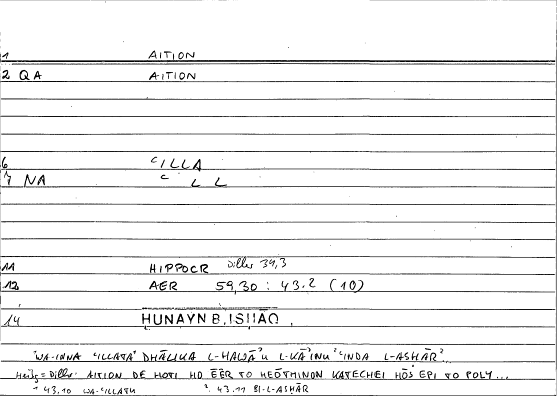 1 AITION
2 QA AITION
6 ʿILLA
7 NA ʿ L L
11 HIPPOCR Diller 34,3
12 AER 59,30 : 43.2 (10)
14 HUNAYN B. ISHAQ
WA-INNA ʿILLATA¹ DHĀLIKA L-HAWĀʾU L-KĀʾINU ʿINDA L-ASHĀR²...
= Diller: AITION DE HOTI HO ĒĒR TO HEŌTHINON KATECHEI HŌS EPI TO POLY...
¹ 43.10 WA-ʿILLATU ² 43.11 BI-L-ASHĀR